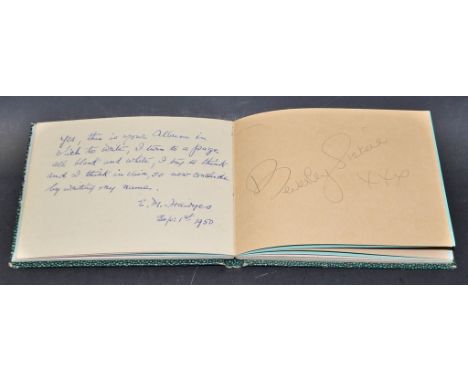 Yes, this is your Album in
which to write, I turn to a page
all blank and white, I try to think
and I think in vain, so now conclude
by writing my name.
E. M.
Sep: 1st 1950
Beverley Sisters
xxx